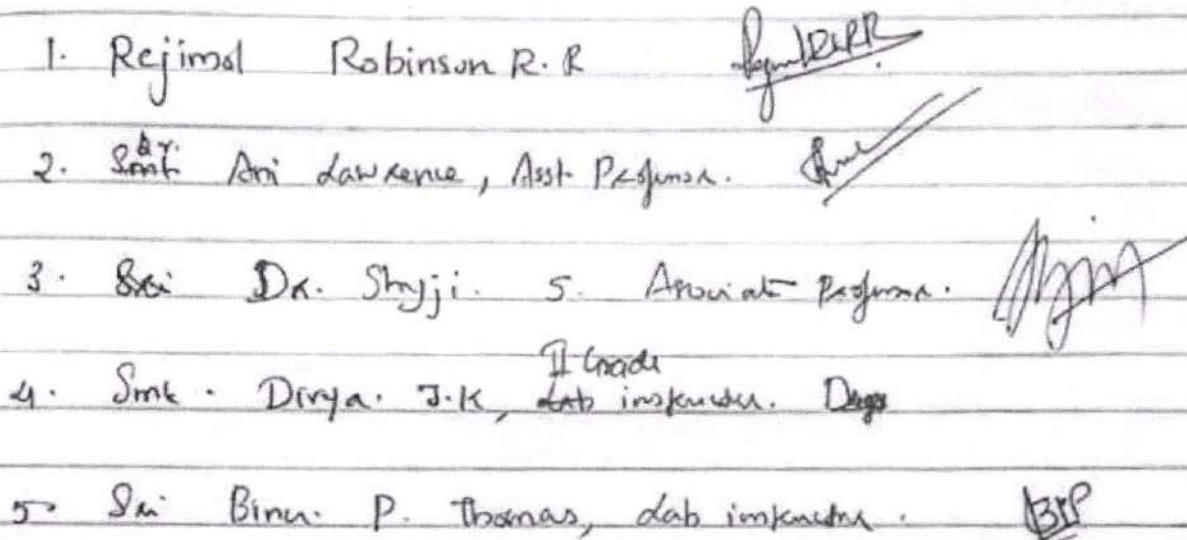 1. Rejimol Robinson R.R
2. Smt. Ani Lawrence, Asst. Professor.
3. Sri Dr. Shyji. S. Associate Professor.
II Grade
4. Smt. Divya. J.K, Lab instructor. Divya
5. Sri Binu. P. Thomas, Lab instructor.